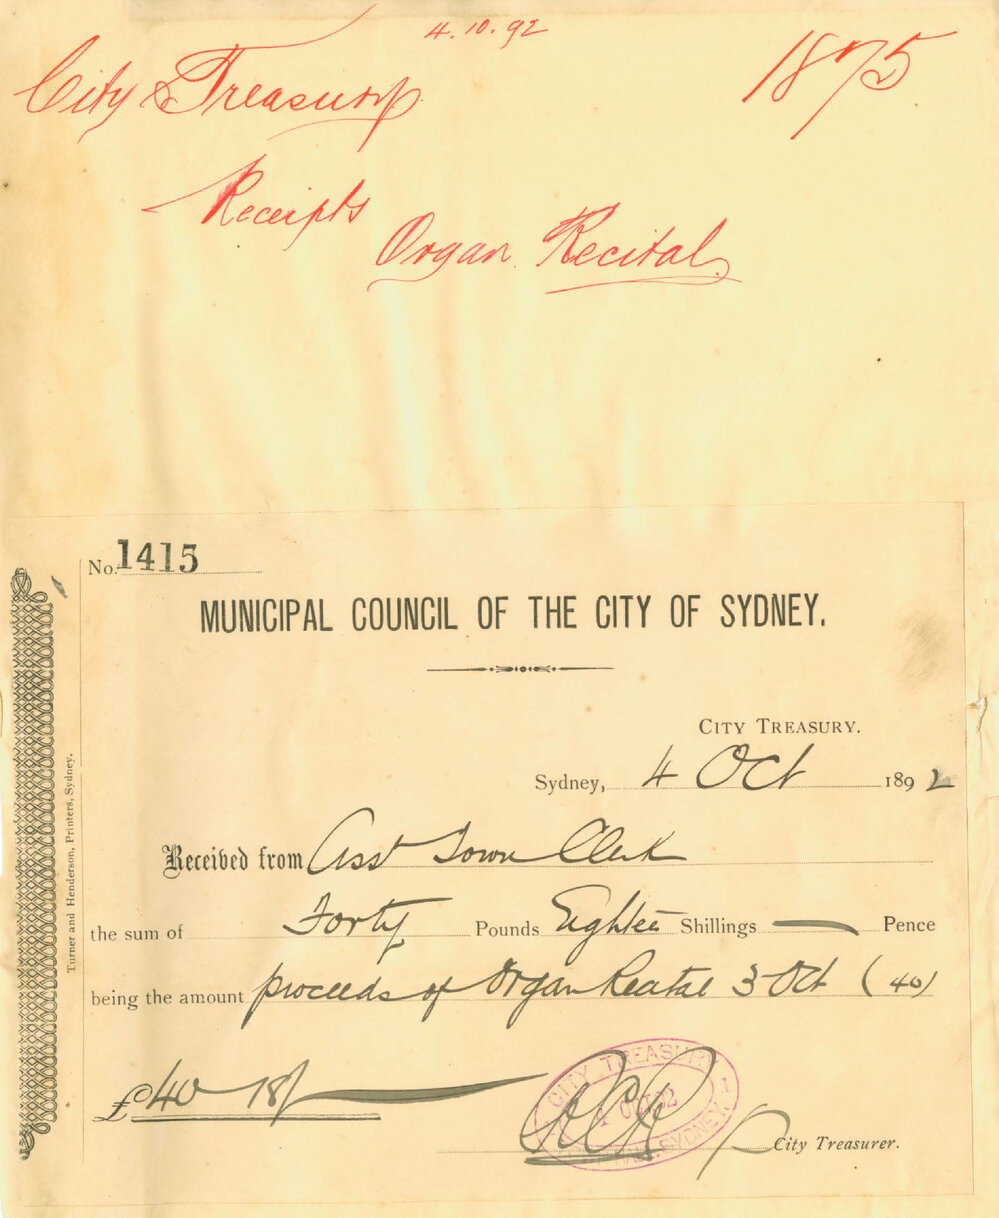 4.10.92
City Treasury
1875
Receipts
Organ Recital
No. 1415
MUNICIPAL COUNCIL OF THE CITY OF SYDNEY.
CITY TREASURY.
Sydney, 4 Oct 1892
Received from Asst Town Clerk
the sum of Forty Pounds Eighteen Shillings — Pence
being the amount proceeds of Organ Recital 3 Oct (40)
£40 18/
CITY TREASURY
OCT 92
SYDNEY
City Treasurer.
Turner and Henderson, Printers, Sydney.